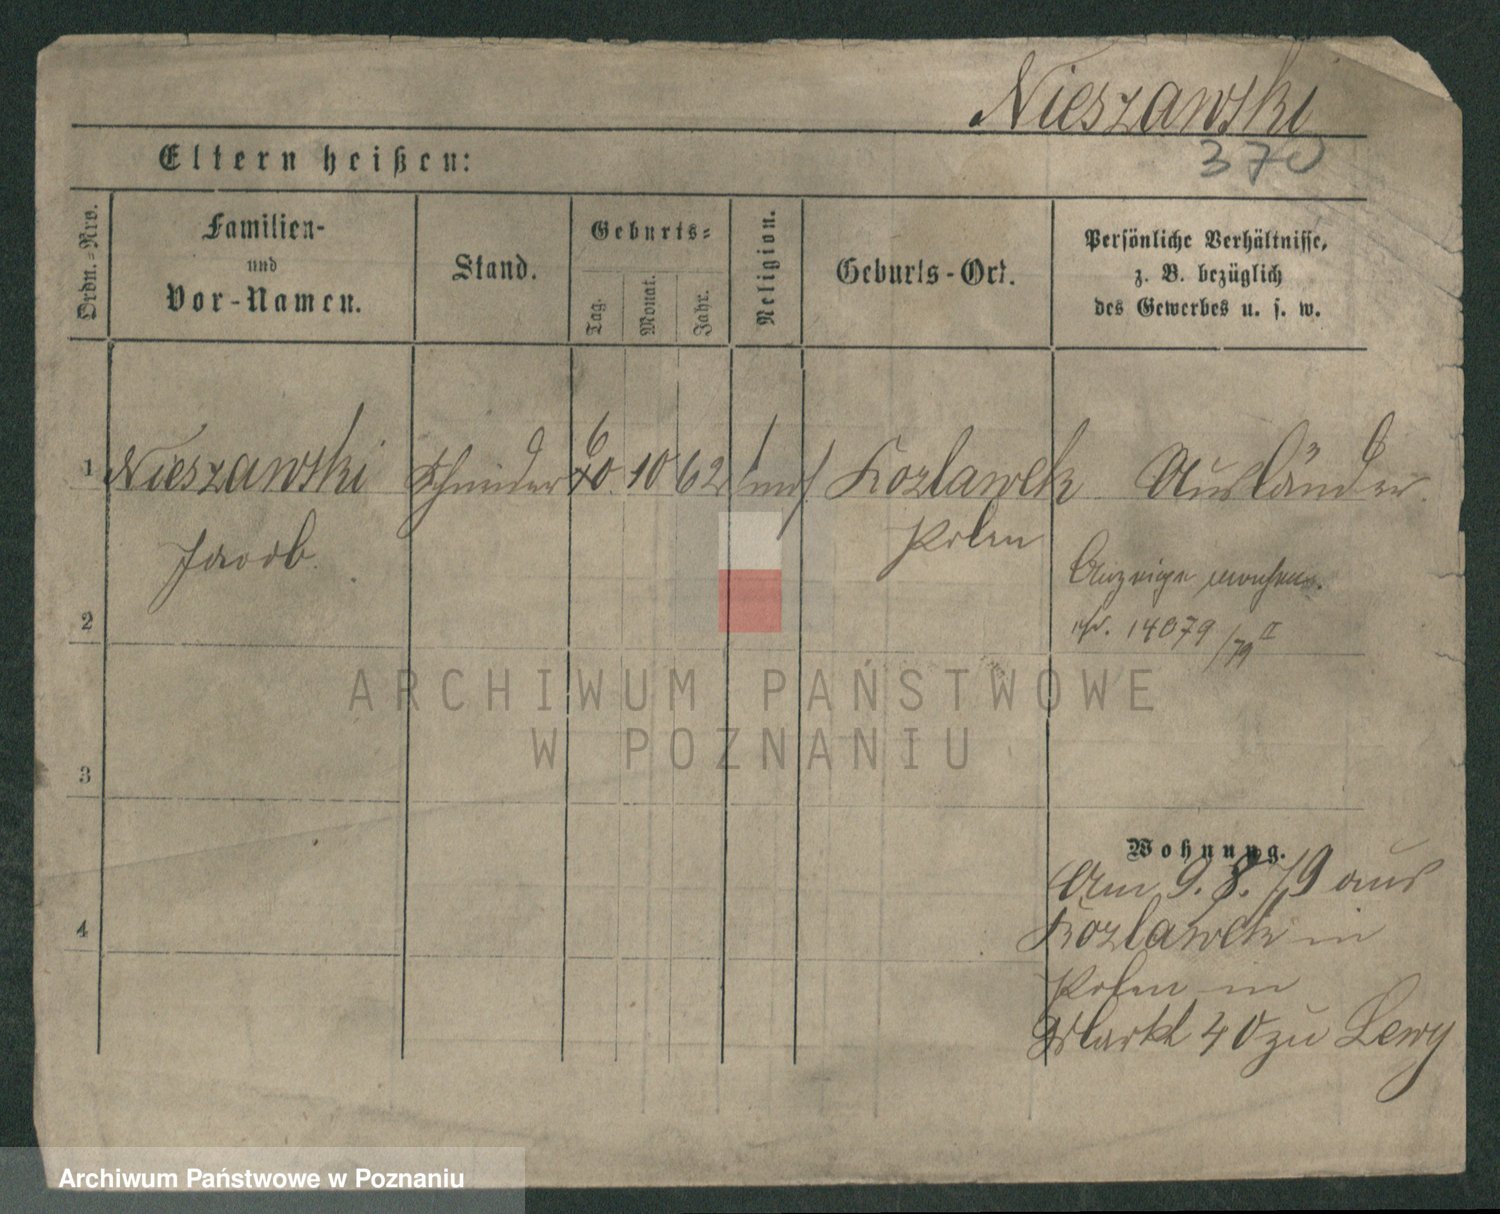 Nieszawski
370
Eltern heißen:
Ordn.-Nro.
Familien-
und
Vor-Namen.
Stand.
Geburts-
Tag.
Monat.
Jahr.
Religion.
Geburts-Ort.
Persönliche Verhältnisse,
z. B. bezüglich
des Gewerbes u. s. w.
1 Nieszawski Schneider 10 62 Kozlawek Ausländer.
Jacob. Polen
Anzeige
14079/79 II
2
ARCHIWUM PAŃSTWOWE
W POZNANIU
3
Wohnung.
Am 9. 8. 79 aus
Kozlawek in
4
Polen in
Markt 40 zu Lewy
Archiwum Państwowe w Poznaniu